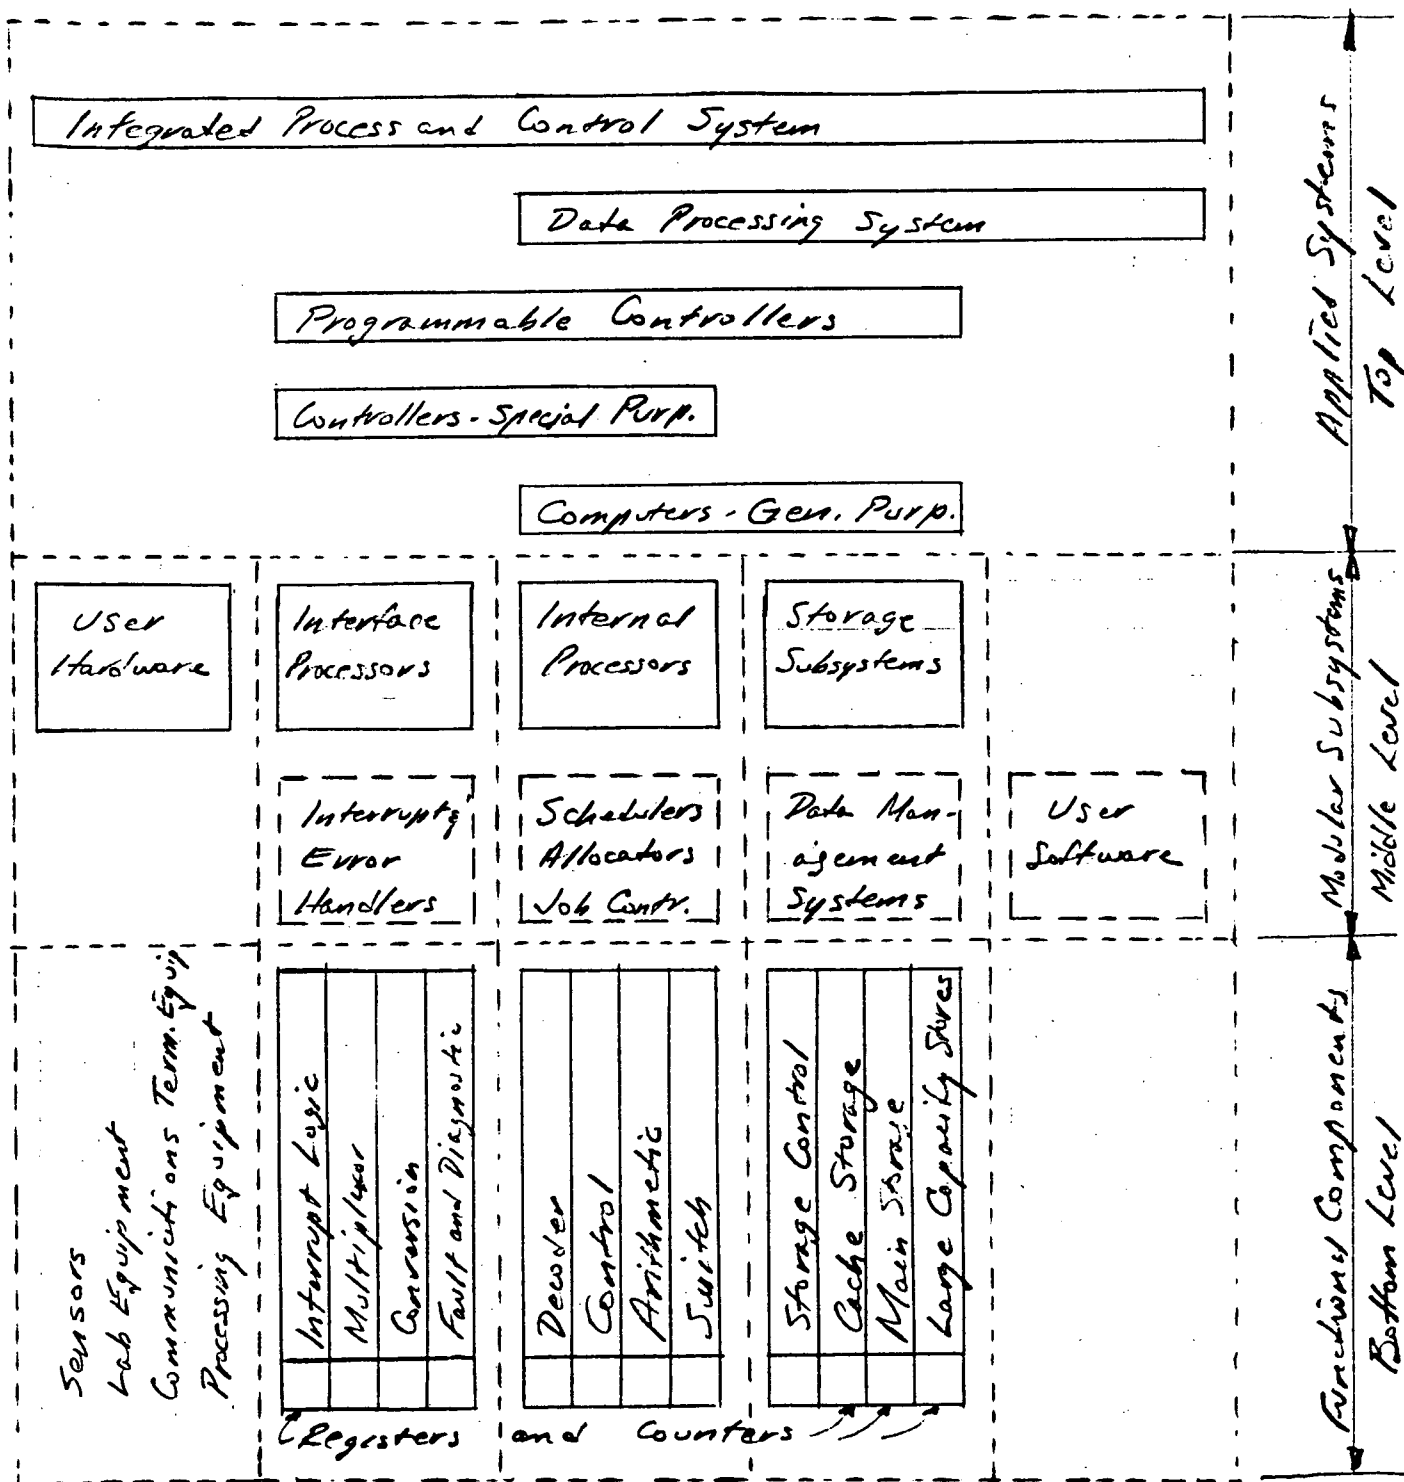 Integrated Process and Control System
Data Processing System
Programmable Controllers
Controllers - Special Purp.
Computers - Gen. Purp.
Applied Systems
Top Level
User
Hardware
Interface
Processors
Internal
Processors
Storage
Subsystems
Interrupt &
Error
Handlers
Schedulers
Allocators
Job Contr.
Data Man-
agement
Systems
User
Software
Modular Subsystems
Middle Level
Sensors
Lab Equipment
Communications Term. Equip
Processing Equipment
Interrupt Logic
Multiplexor
Conversion
Fault and Diagnostic
Decoder
Control
Arithmetic
Switch
Storage Control
Cache Storage
Main Storage
Large Capacity Stores
Registers and Counters
Functional Components
Bottom Level